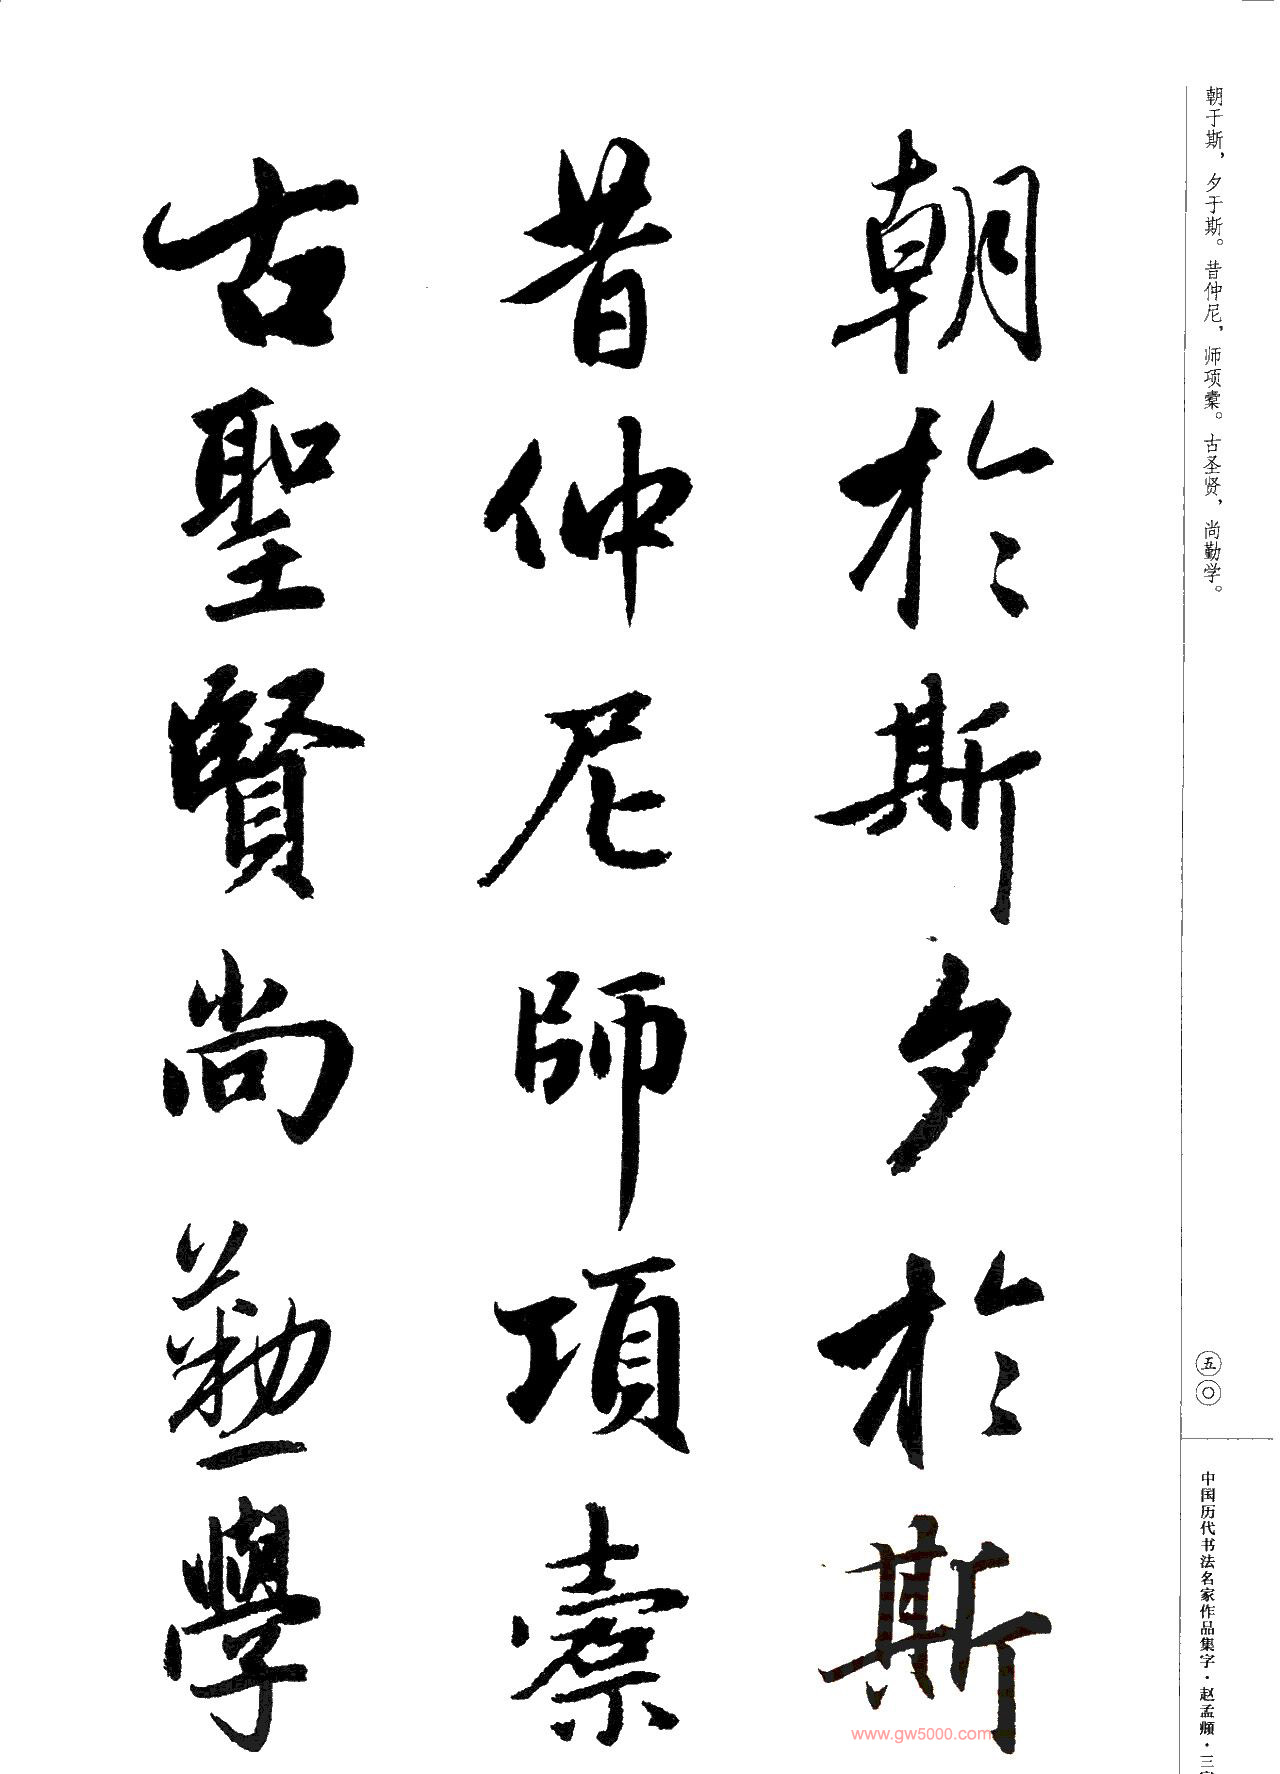 朝于斯，夕于斯。昔仲尼，师项橐。古圣贤，尚勤学。
五〇
中国历代书法名家作品集字·赵孟頫·三
朝於斯夕於斯
昔仲尼師項橐
古聖賢尚勤學
www.gw5000.com